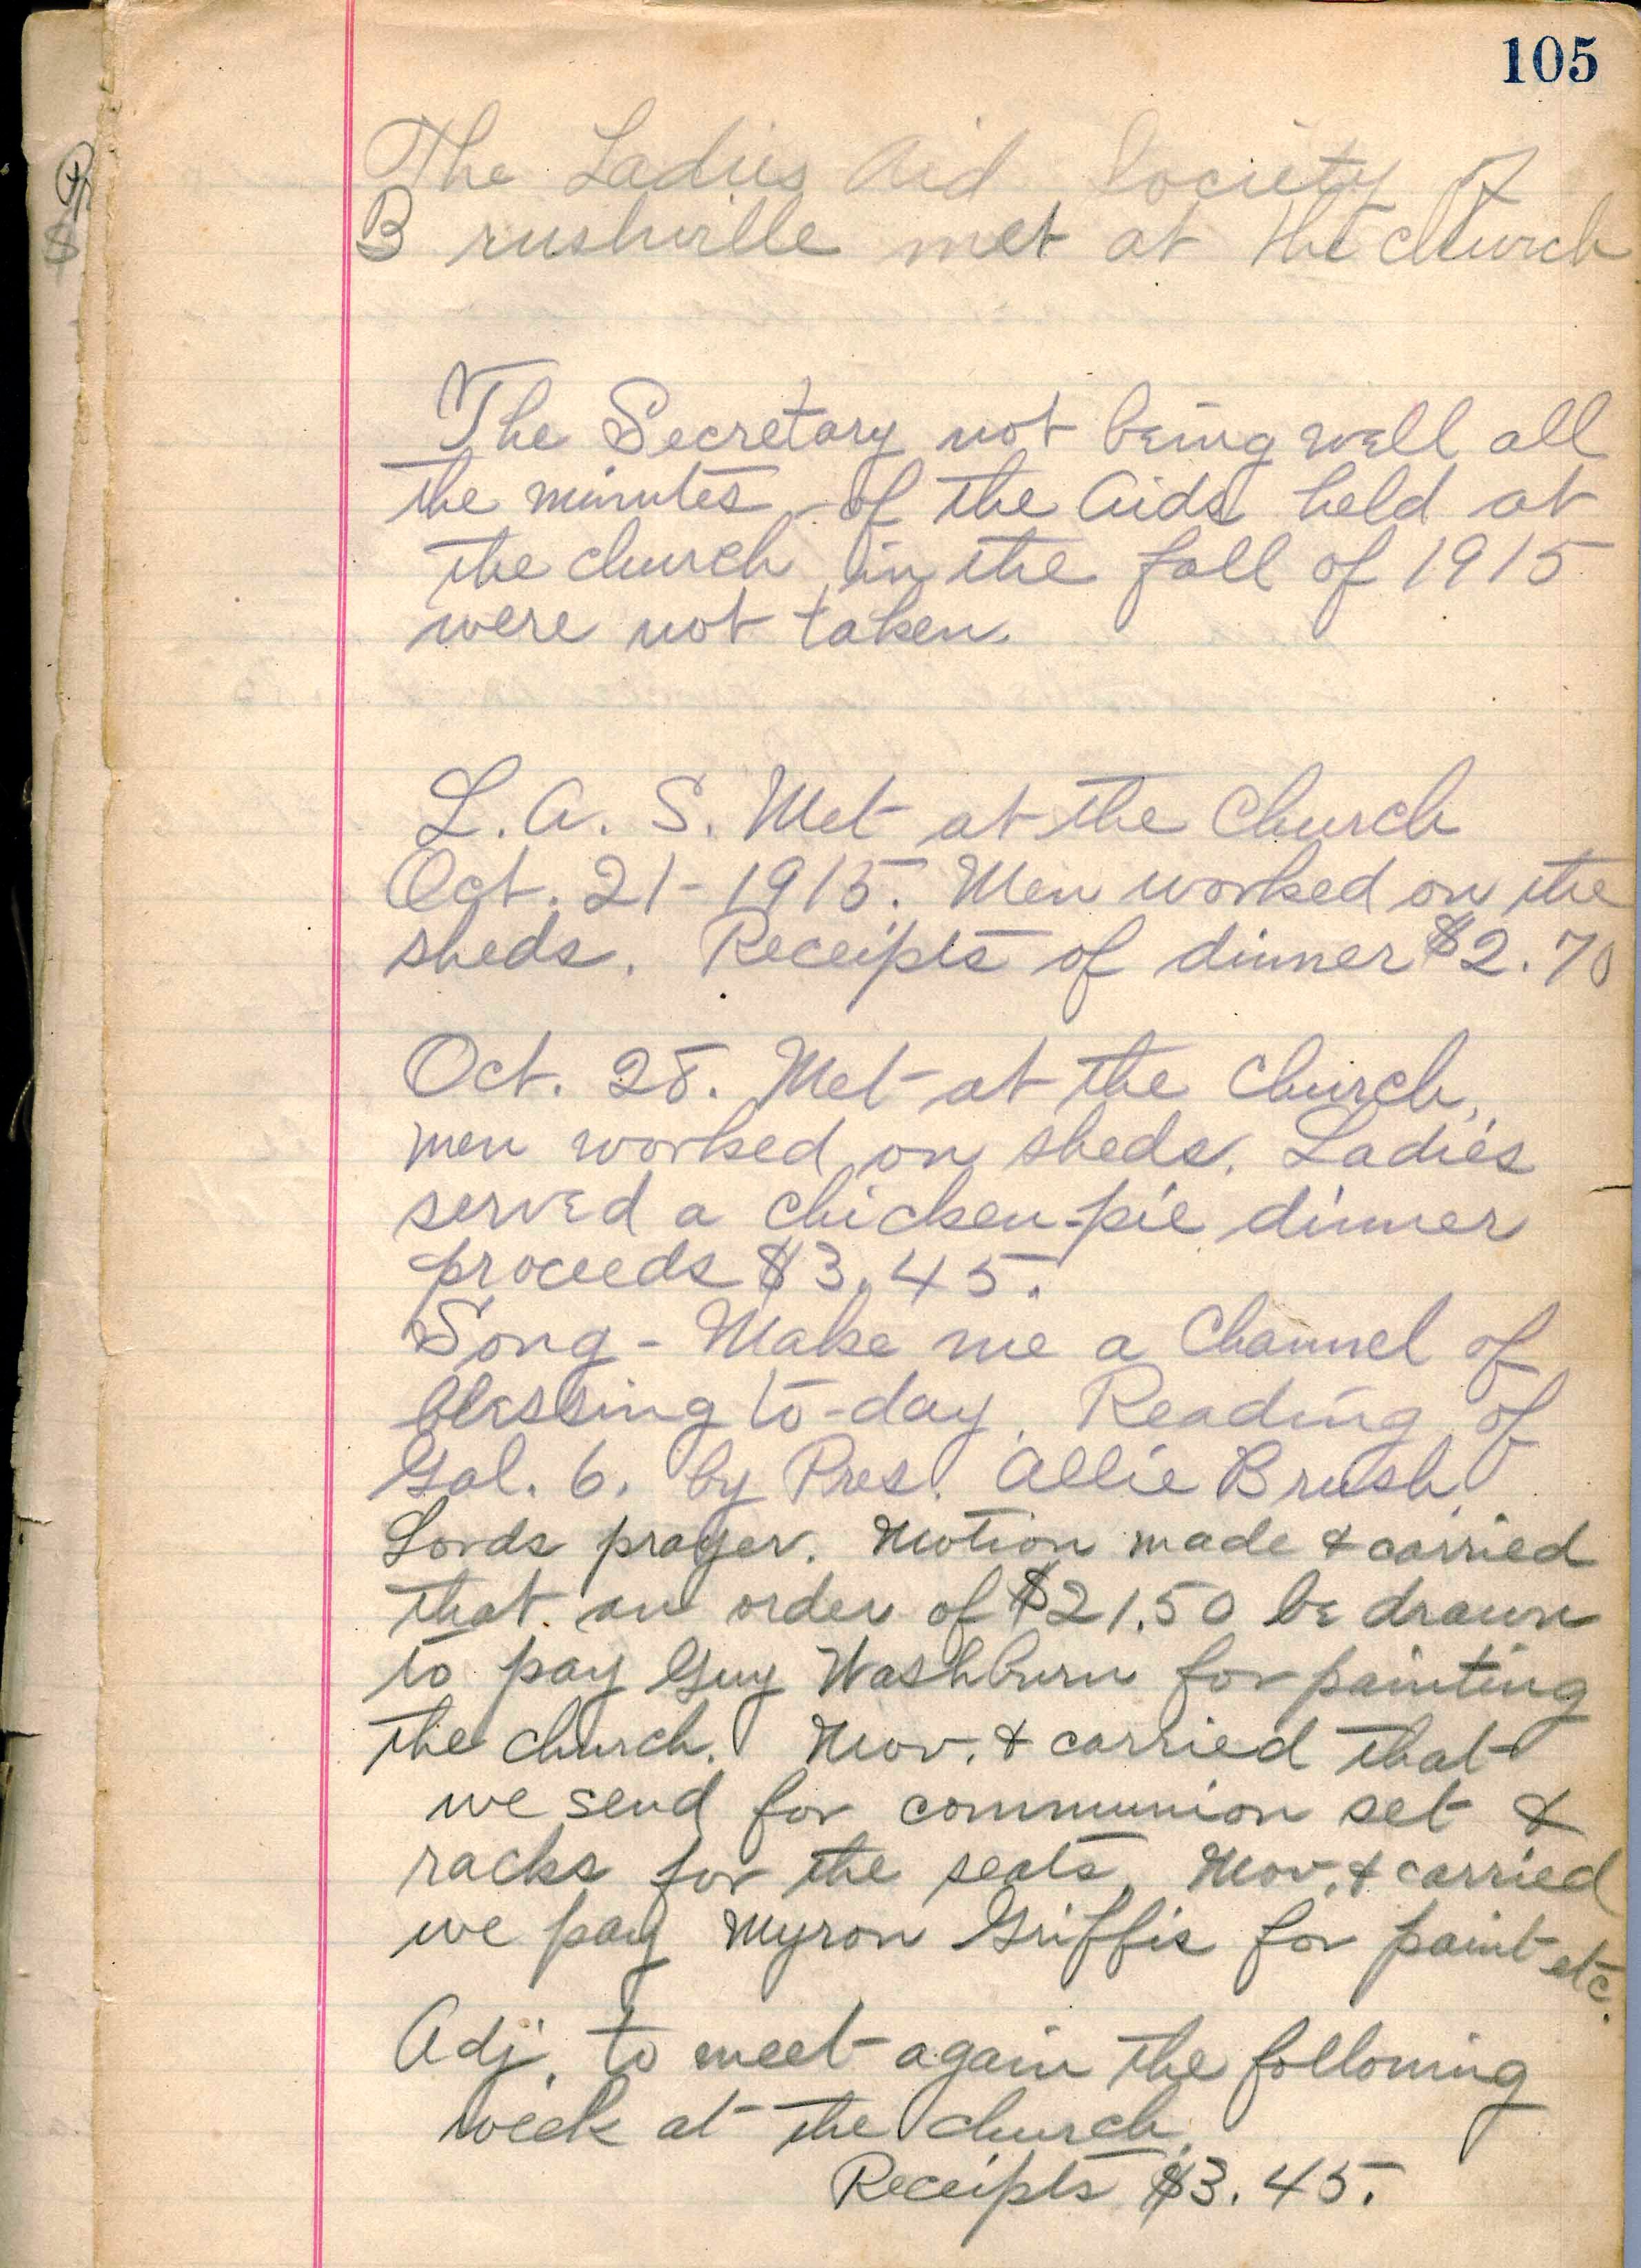 105
The Ladies Aid Society of
Brushville met at the church
The Secretary not being well all
the minutes of the Aids held at
the church in the fall of 1915
were not taken.
L. A. S. Met at the Church
Oct. 21-1915. Men worked on the
sheds. Receipts of dinner $2.70
Oct. 28. Met at the Church,
men worked on sheds. Ladies
served a chicken-pie dinner
proceeds $3.45.
Song - Make me a Channel of
blessing to-day. Reading of
Gal. 6. by Pres. Allie Brush
Lords prayer. Motion made & carried
that an order of $21.50 be drawn
to pay Guy Washburn for painting
the church. Mov. & carried that
we send for communion set &
racks for the seats. Mov. & carried
we pay Myron Griffis for paint etc.
Adj. to meet again the following
week at the church.
Receipts $3.45.